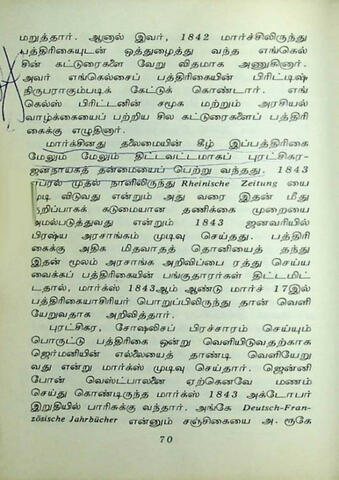 மறுத்தார். ஆனால் இவர், 1842 மார்ச்சிலிருந்து
பத்திரிகையுடன் ஒத்துழைத்து வந்த எங்கெல்
சின் கட்டுரைகளை வேறு விதமாக அணுகினார்.
அவர் எங்கெல்சைப் பத்திரிகையின் பிரிட்டிஷ்
நிருபராகும்படிக் கேட்டுக் கொண்டார். எங்
கெல்ஸ் பிரிட்டனின் சமூக மற்றும் அரசியல்
வாழ்க்கையைப் பற்றிய சில கட்டுரைகளைப் பத்திரி
கைக்கு எழுதினார்.
மார்க்சினது தலைமையின் கீழ் இப்பத்திரிகை
மேலும் மேலும் திட்டவட்டமாகப் புரட்சிகர-
ஜனநாயகத் தன்மையைப் பெற்று வந்தது. 1843
ஏப்ரல் முதல் நாளிலிருந்து Rheinische Zeitung யை
மூடி விடுவது என்றும் அது வரை இதன் மீது
குறிப்பாகக் கடுமையான தணிக்கை முறையை
அமல்படுத்துவது என்றும் 1843 ஜனவரியில்
பிரஷ்ய அரசாங்கம் முடிவு செய்தது. பத்திரி
கைக்கு அதிக மிதவாதத் தொனியைத் தந்து
இதன் மூலம் அரசாங்க அறிவிப்பை ரத்து செய்ய
வைக்கப் பத்திரிகையின் பங்குதாரர்கள் திட்டமிட்
டதால், மார்க்ஸ் 1843ஆம் ஆண்டு மார்ச் 17இல்
பத்திரிகையாசிரியர் பொறுப்பிலிருந்து தான் வெளி
யேறுவதாக அறிவித்தார்.
புரட்சிகர, சோஷலிசப் பிரச்சாரம் செய்யும்
பொருட்டு பத்திரிகை ஒன்று வெளியிடுவதற்காக
ஜெர்மனியின் எல்லையைத் தாண்டி வெளியேறு
வது என்று மார்க்ஸ் முடிவு செய்தார். ஜென்னி
போன் வெஸ்ட்பாலனை ஏற்கெனவே மணம்
செய்து கொண்டிருந்த மார்க்ஸ் 1843 அக்டோபர்
இறுதியில் பாரிசுக்கு வந்தார். அங்கே Deutsch-Fran-
zösische Jahrbücher என்னும் சஞ்சிகையை அ. ரூகே
70